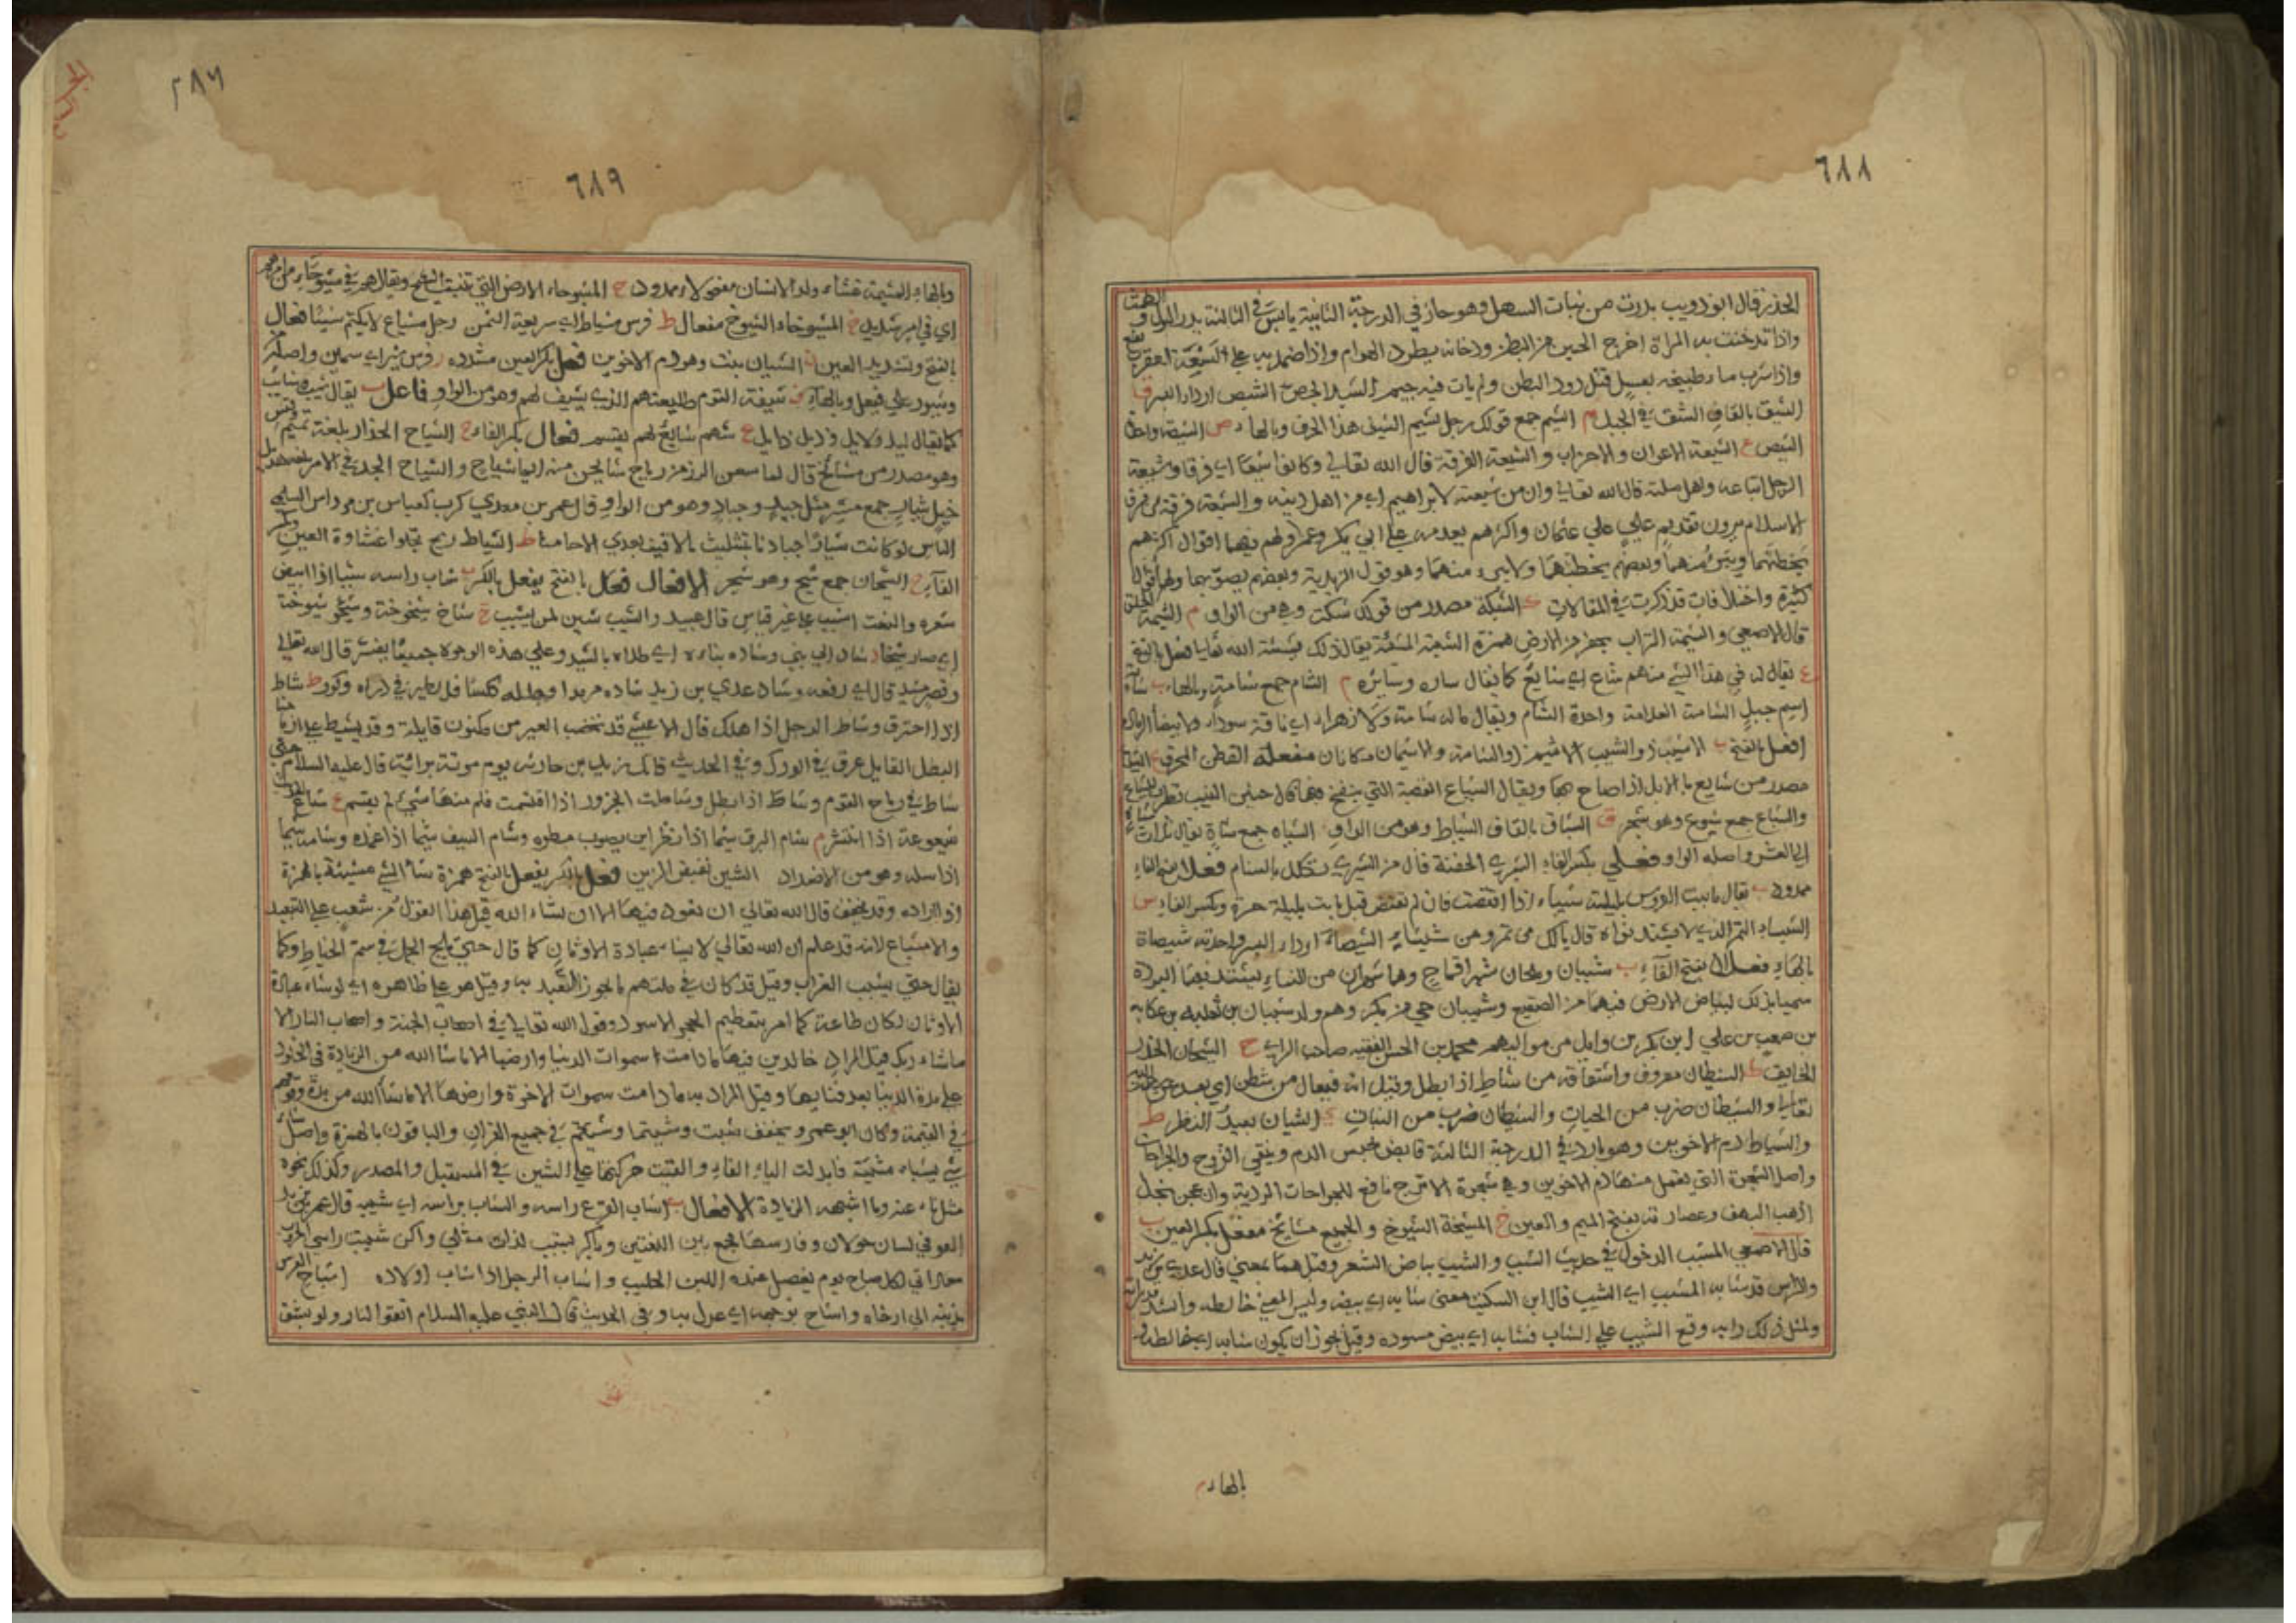 ٦٨٨
الحذر قال ابو ذويب بدرت من نبات السهل وهو حار في الدرجة الثانية يابس في الثالثة يدر البول و
واذا تدخنت به المراة اخرج الجنين من البطن ودخانه يطرد الهوام واذا ضمد به على لسعة العقرب نفع
واذا شرب ماء طبيخه بعسل قتل دود البطن ولم يات فيه جيم الشيد الجص ص الشيص اردا البسر ق
الشيق بالقاف الشق في الجبل م الشيم جمع قولك رجل اشيم الشين هذا الحرف وبالهاء ص الشيصة واحدة
الشيص ع الشيعة الاعوان والاحزاب والشيعة الفرقة قال الله تعالى وكانوا شيعا اي فرقا وشيعة
الرجل اتباعه واهل ملته قال الله تعالى وان من شيعته لابراهيم اي من اهل دينه والشيعة فرقة من فرق
الاسلام يرون تقديم علي على عثمان واكثرهم يقدمه على ابي بكر وعمر ولهم فيها اقوال اكثرهم
يخطئهما ويتبرأ منهما وبعضهم يخطئهما ولا يبرء منهما وهو قول الزيدية وبعضهم يصوبهما ولهم اقوال
كثيرة واختلافات قد ذكرت في المقالات ك الشيكة مصدر من قولك شكت وهي من الواو م الشيمة الخلق
قال الاصمعي والشيمة التراب يحفر من الارض همزة الشيئة المشيئة يقال ذلك بشيئة الله تعالى فعل بالفتح
ع يقال له في هذا الشيء سهم شاع اي شايع كما يقال ساره وسايره م الشام جمع شامة وبالهاء ب شابة
اسم جبل الشامة العلامة واحدة الشام ويقال ماله شامة ولا زهراء اي ناقة سوداء ولا بيضاء
افعل بالفتح ب الاشيب ذو الشيب الاشيم ذو الشامة والاشيمان مكانان مفعلة القطن المحرق ع الشياع
مصدر من شايع بالابل اذا صاح بها ويقال الشياع القصبة التي ينفخ فيها
والشياع جمع شيوع وهو شجر ق الشياق بالقاف النياط وهو من الواو الشياه جمع شاة يقال ثلاث شياه
الى العشر واصله الواو فعلى بكسر الفاء الشيزى الجفنة قال من الشيزى تكلل بالسنام فعلاء بفتح الفاء
ممدود ب يقال باتت العروس بليلة شيباء اذا افتضت فان لم تفتض قيل باتت بليلة حرة وبكسر الفاء س
الشيساء التمر الذي لا يشتد نواه قال يا لك من تمر ومن شيشاء الشيصاء اردا البسر واحدته شيصاة
بالهاء فعلان بفتح الفاء ب شيبان وملحان شهرا قماح وهما شهران من الشتاء يشتد فيهما البرد
سميا بذلك لبياض الارض فيهما من الصقيع وشيبان حي من بكر وهم ولد شيبان بن ثعلبة بن عكابة
بن صعب بن علي ابن بكر بن وايل من مواليهم محمد بن الحسن الفقيه صاحب الراي ح الشيحان الحذر
الخايف ط الشيطان معروف واشتقاقه من شاط اذا بطل وقيل انه فيعال من شطن اي بعد عن رحمة الله
تعالى والشيطان ضرب من الحيات والشيطان ضرب من النبات الشيان بعيد النظر ط
والشياط دم الاخوين وهو بارد في الدرجة الثالثة قابض يحبس الدم وينقي القروح والجراحات
واصل الشجرة التي يعمل منها دم الاخوين وهي شجرة الاترج نافع للجراحات الردية وان عجن بخل
اذهب البهق وعصارته بفتح الميم والعين خ المشيخة الشيوخ والجميع مشايخ مفعل بكسر العين ب
قال الاصمعي المشيب الدخول في حديث الشيب والشيب بياض الشعر وقيل هما بمعنى قال عدي بن زيد
والراس قد شابه المشيب اي الشيب قال ابن السكيت معنى شابه اي بيضه وليس المعنى خالطه وانشد
ولمثل ذلك رابه وقع المشيب على الشباب فشابه اي بيض مسوده وقيل يجوز ان يكون شابه اي خالطه و
بالهاء م
٢٨٦
٦٨٩
وبالهاء المشيمة غشاء ولد الانسان مفعولاء ممدود ح المشيوحاء الارض التي تنبت الشيح ويقال هم في مشيوحاء من امرهم
اي في امر شديد خ المشيوخاء الشيوخ مفعال ط فرس مشياط اي سريعة السمن رجل مشياع لا يكتم شيئا فعال
بالفتح وتشديد العين ن الشيان نبت وهو دم الاخوين فعل بكسر العين مشدده ر فرس شير اي سمين واصله
وشيور على فيعل وبالهاء ف شيفة القوم طليعتهم الذي يشيف لهم وهو من الواو فاعل ب يقال شيب شايب
كما يقال ليل لايل وذيل ذايل ع سهم شايع لم يقسم فعال بكسر الفاء ح الشياح الحذار بلغة تميم وقيس
وهو مصدر من مشايح قال لما سمعن الرز من رياح شايحن منه ايما شياح والشياح الجد في الامر بلغة هذيل
خيل شيار جمع مثل جيد وجياد وهو من الواو قال عمر بن معدي كرب لعباس بن مرداس السلمي
الناس لو كانت شيارا جيادنا بتثليث ما لاقيت بعدي الاحامسا ط الشياط ريح تجلو غشاوة العين وبكسر
الفاء ح الشيحان جمع شيح وهو شجر الافعال فعل بالفتح يفعل بالكسر ب شاب راسه شيبا اذا ابيض
شعره والنعت اشيب على غير قياس قال عبيد والشيب شين لمن يشيب خ شاخ شيخوخة وشيخ شيوخة
اي صار شيخا د شاد اي بنى وشاده بناءه اي طلاه بالشيد وعلى هذه الوجوه جميعا يفسر قال الله تعالى
وقصر مشيد قال اي رفعه وشاد عدي بن زيد شاده مرمرا وجلله كلسا فللطير في ذراه وكور ط شاط
اذا احترق وشاط الرجل اذا هلك قال الاعشى قد نخضب العير من مكنون فايله وقد يشيط على ارماحنا
البطل الفايل عرق في الورك وفي الحديث قاتل زيد بن حارثه يوم موتة براية قال عليه السلام حتى
شاط في رماح القوم وشاط اذا بطل وشاطت الجزور اذا اقتسمت فلم منها شيء لم يقسم ع شاع
شيعوعة اذا انتشر م شام البرق شيما اذا نظر اين يصوب مطره وشام السيف شيما اذا غمده وشامه شيما
اذا سله وهو من الاضداد الشين نقيض الزين فعل بالكسر يفعل بالفتح همزة شاء الشيء مشيئة بالهمزة
اذا اراده وقد يخفف قال الله تعالى ان نعود فيها الا ان يشاء الله قيل هذا القول من شعيب على التبعيد
والامتناع لانه قد علم ان الله تعالى لا يشاء عبادة الاوثان كما قال حتى يلج الجمل في سم الخياط وكما
يقال حتى يشيب الغراب وقيل قد كان في ملتهم ما يجوز التعبد به وقيل هو على ظاهره اي لو شاء عبادة
الاوثان لكان طاعة كما امر بتعظيم الحجر الاسود وقول الله تعالى في اصحاب الجنة واصحاب النار الا
ماشاء ربك قيل المراد خالدين فيها مادامت سموات الدنيا وارضها الا ماشا الله من الزيادة في الخلود
على مدة الدنيا بعد فنايها وقيل المراد به ما دامت سموات الاخرة وارضها الا ماشأ الله من مدة وقوفهم
في القيمة وكان ابو عمرو يخفف شيت وشيتما وشيتم في جميع القران والباقون بالهمزة واصل شاء
شيء يشياء مشيئة فابدلت الياء الفا والقيت حركتها على الشين في المستقبل والمصدر وكذلك نحوه
مثل ناء عنه وما اشبهه الزيادة الافعال ب اشاب القرع راسه والشاب براسه اي شيبه قال عمر بن
العوفي لسان خولان وفارسها لجمع بين اللغتين وما كبر يشيب لذاك مثلي ولكن شيبت راسي الحروب
لكل صباح يوم يفصل عنده اللبن الحليب واشاب الرجل اذا شاب اولاده اشاح الفرس
بذنبه اي ارخاه واشاح بوجهه اي عدل به وفي الحديث قال النبي عليه السلام اتقوا النار ولو بشق